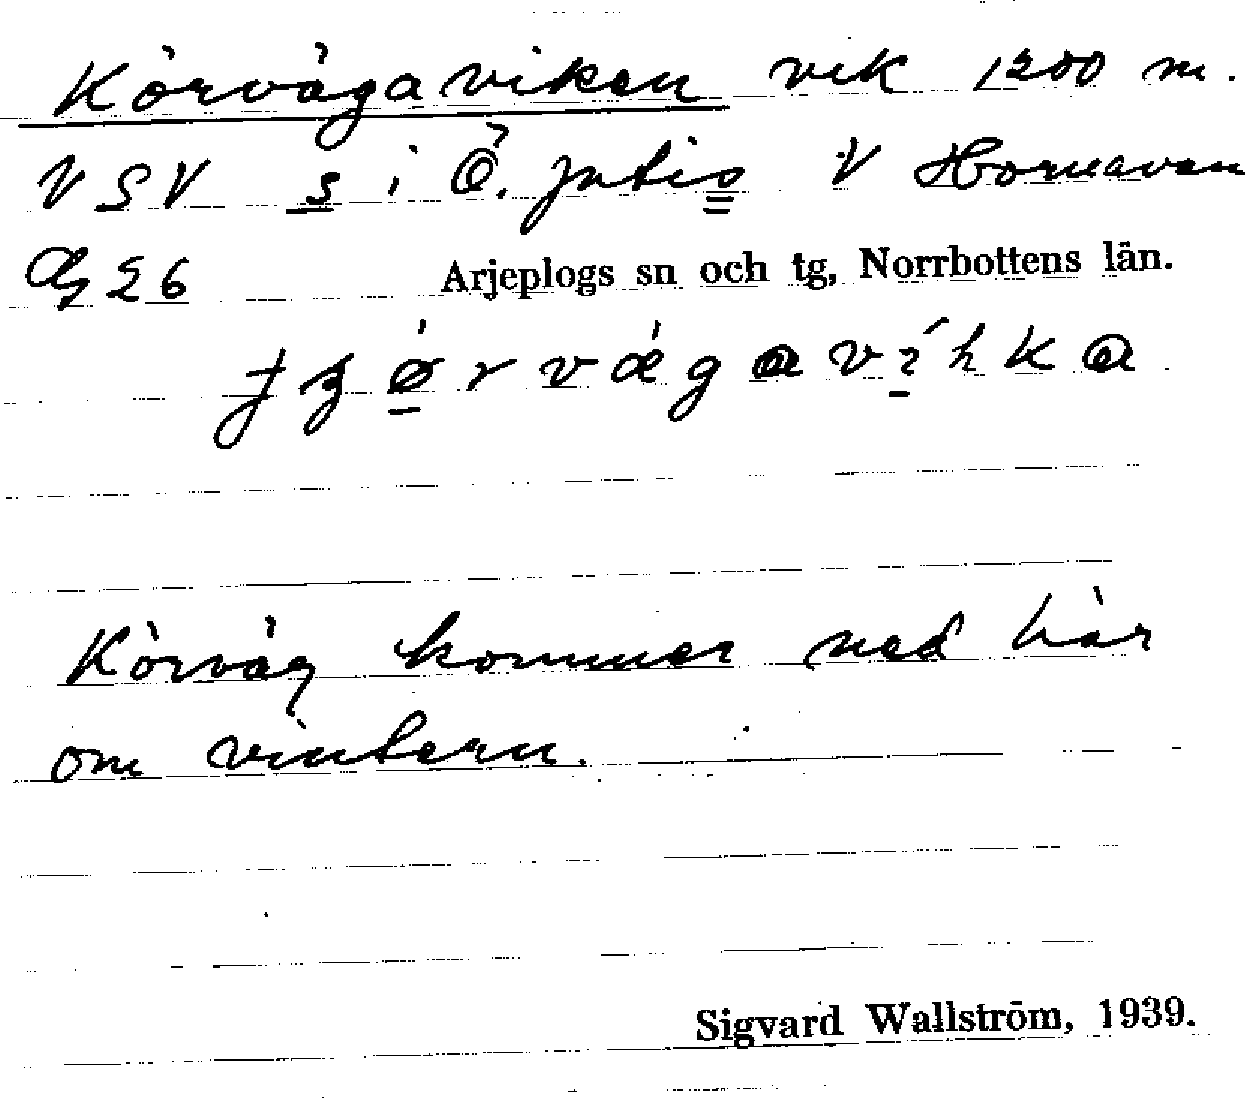 Körvägaviken vik 1200 m.
VSV s i Ö. Jutis V Hornavan
26 Arjeplogs sn och tg, Norrbottens län.
Körväg kommer ned här
om vintern.
Sigvard Wallström, 1939.